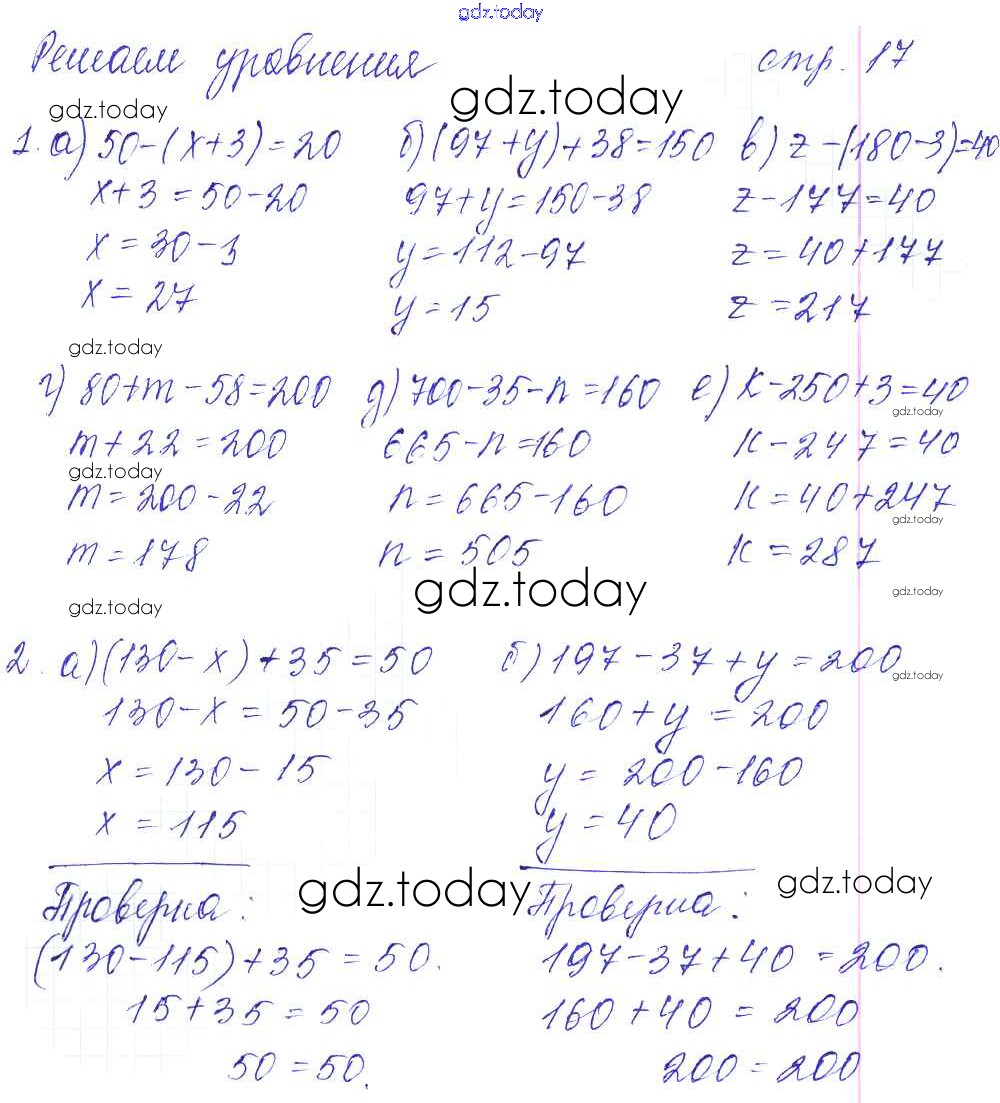 gdz.today
Решаем уровнения стр. 17
gdz.today gdz.today
1. а) 50-(x+3)=20 б) (97+y)+38=150 в) z-(180-3)=40
x+3=50-20 97+y=150-38 z-177=40
x=30-3 y=112-97 z=40+177
x=27 y=15 z=217
gdz.today
г) 80+m-58=200 д) 700-35-n=160 е) к-250+3=40
gdz.today
m+22=200 665-n=160 к-247=40
gdz.today
m=200-22 n=665-160 к=40+247
gdz.today
m=178 n=505 к=287
gdz.today gdz.today gdz.today
2. а) (130-x)+35=50 б) 197-37+y=200
gdz.today
130-x=50-35 160+y=200
x=130-15 y=200-160
x=115 y=40
gdz.today gdz.today
Проверка: Проверка:
(130-115)+35=50. 197-37+40=200.
15+35=50 160+40=200
50=50. 200=200